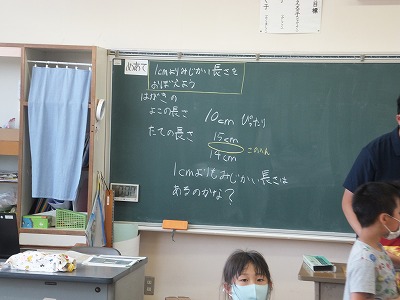 めあて
1cmよりみじかい長さを
おぼえよう
はがきの
よこの長さ 10cm ぴったり
たての長さ 15cm
14cm このへん
1cmよりもみじかい長さは
あるのかな?